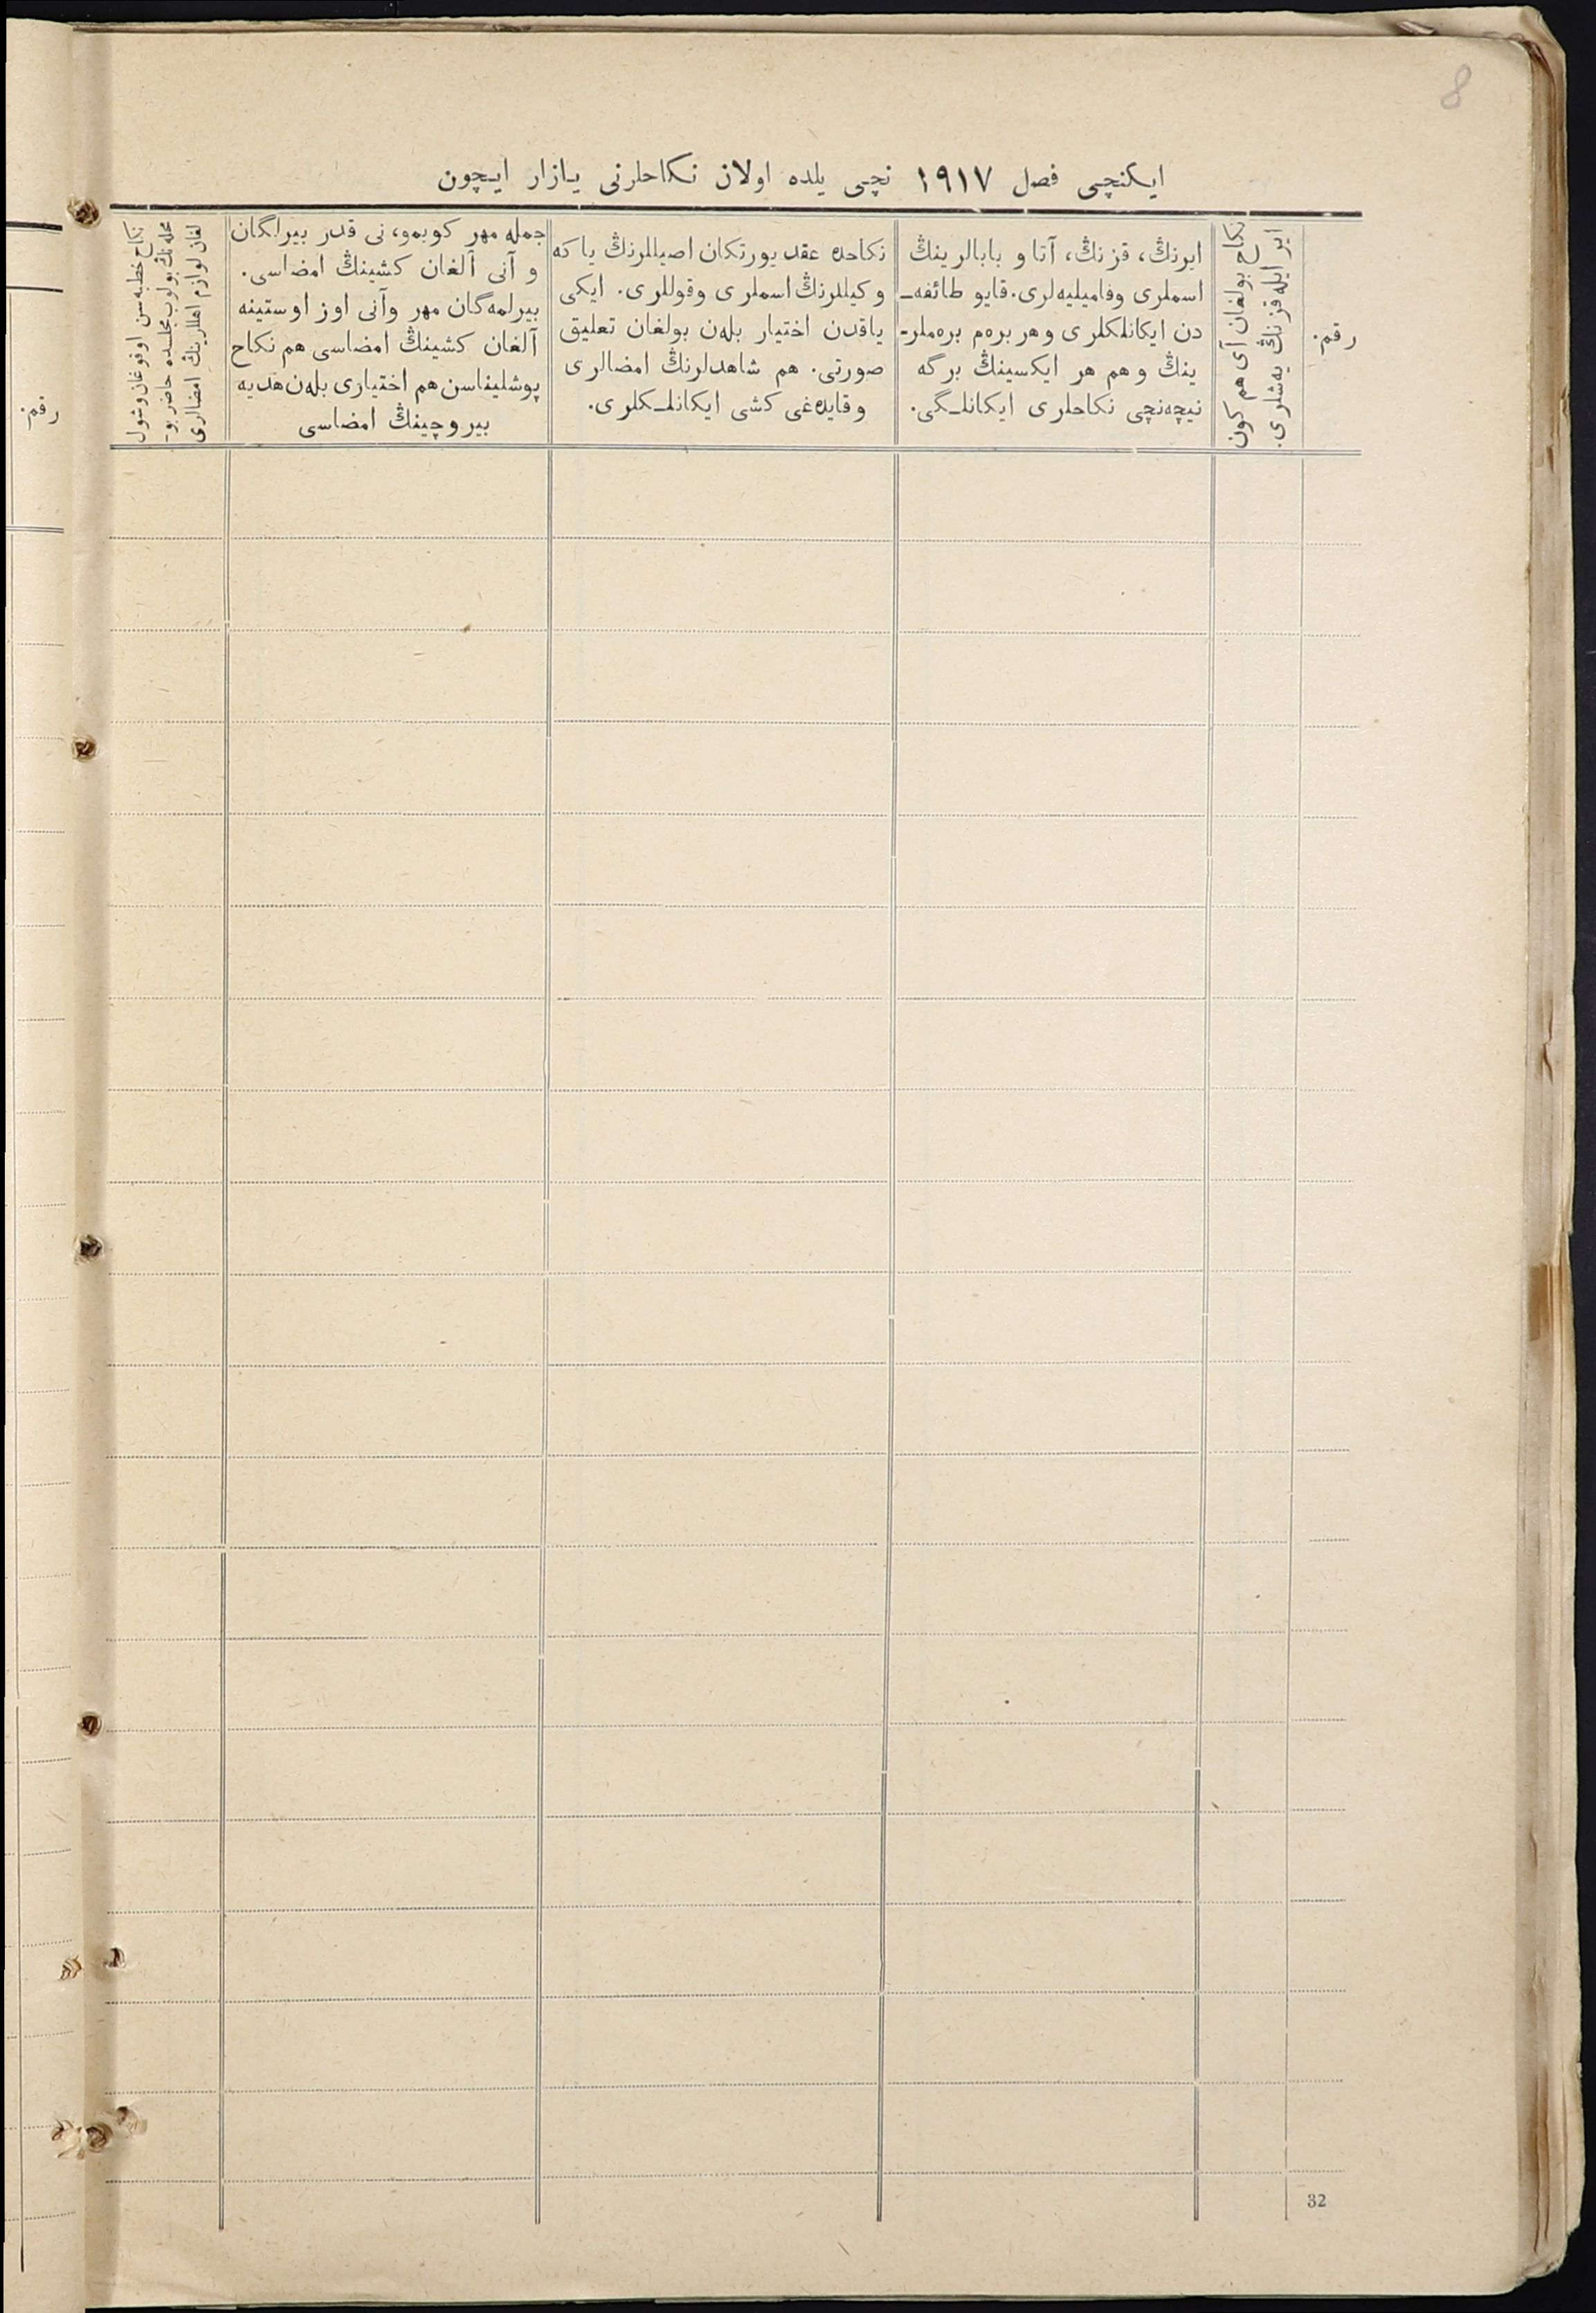 8
ایکنچی فصل ١٩١٧ نچی یلده اولان نکاحلرنی یازار ایچون
رقم.
نکاح بولغان آی هم کون
ایر ایله قزنڭ یه‌شلری.
ایرنڭ، قزنڭ، آتا و بابالرینڭ
اسملری وفامیلیه‌لری. قایو طائفه‌ـ
دن ایکانلکلری وهر بره‌م بره‌ملرـ
ینڭ وهم هر ایکسینڭ برگه
نیچه‌نچی نکاحلری ایکانلـگی.
نکاحده عقد یورتکان اصیللرنڭ یا که
وکیللرنڭ اسملری وقوللری. ایکی
یاقدن اختیار بله‌ن بولغان تعلیق
صورتی. هم شاهدلرنڭ امضالری
وقایده‌غی کشی ایکانلـکلری.
جمله مهر کوبمو، نی قدر بیرلگان
و آنی آلغان کشینڭ امضاسی.
بیرلمه‌گان مهر وآنی اوز اوستینه
آلغان کشینڭ امضاسی هم نکاح
پوشلیناسن هم اختیاری بله‌ن هدیه
بیروچینڭ امضاسی
نکاح خطبه‌سن اوقوغان وشول
محله‌نڭ بولوب مجلسده حاضر بوـ
لغان لوازم اهللرینڭ امضالری
رقم.
32